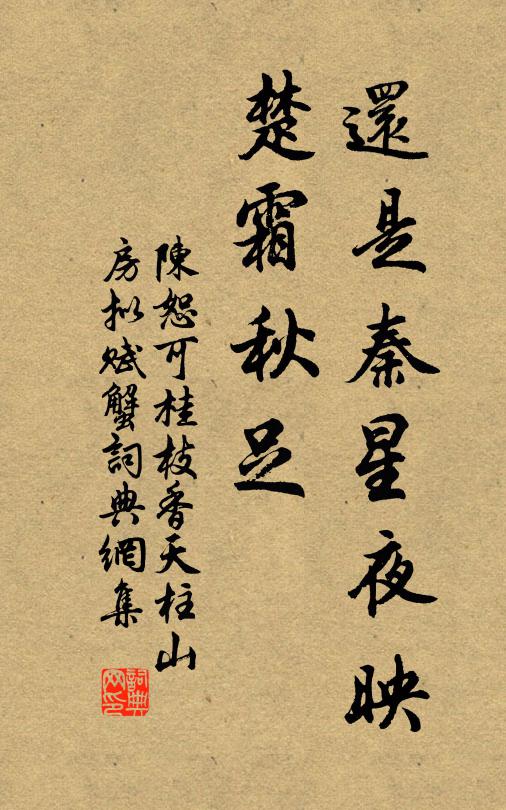 還是秦星夜映
楚霜秋足
陳恕可桂枝香天柱山
房拟赋蟹詞典網集
詞典
网印